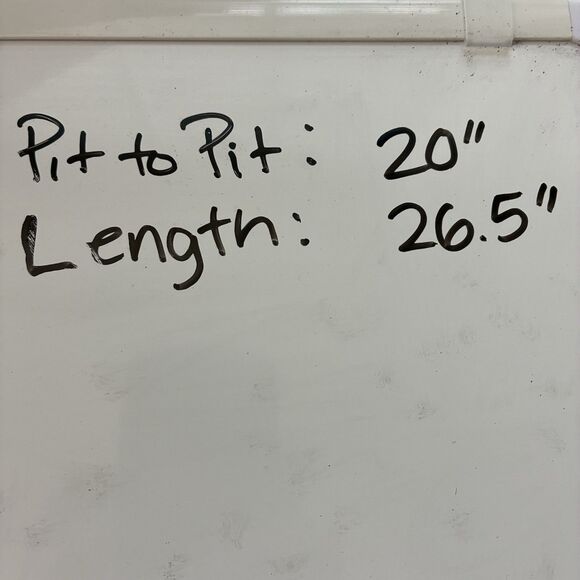 Pit to Pit: 20"
Length: 26.5"